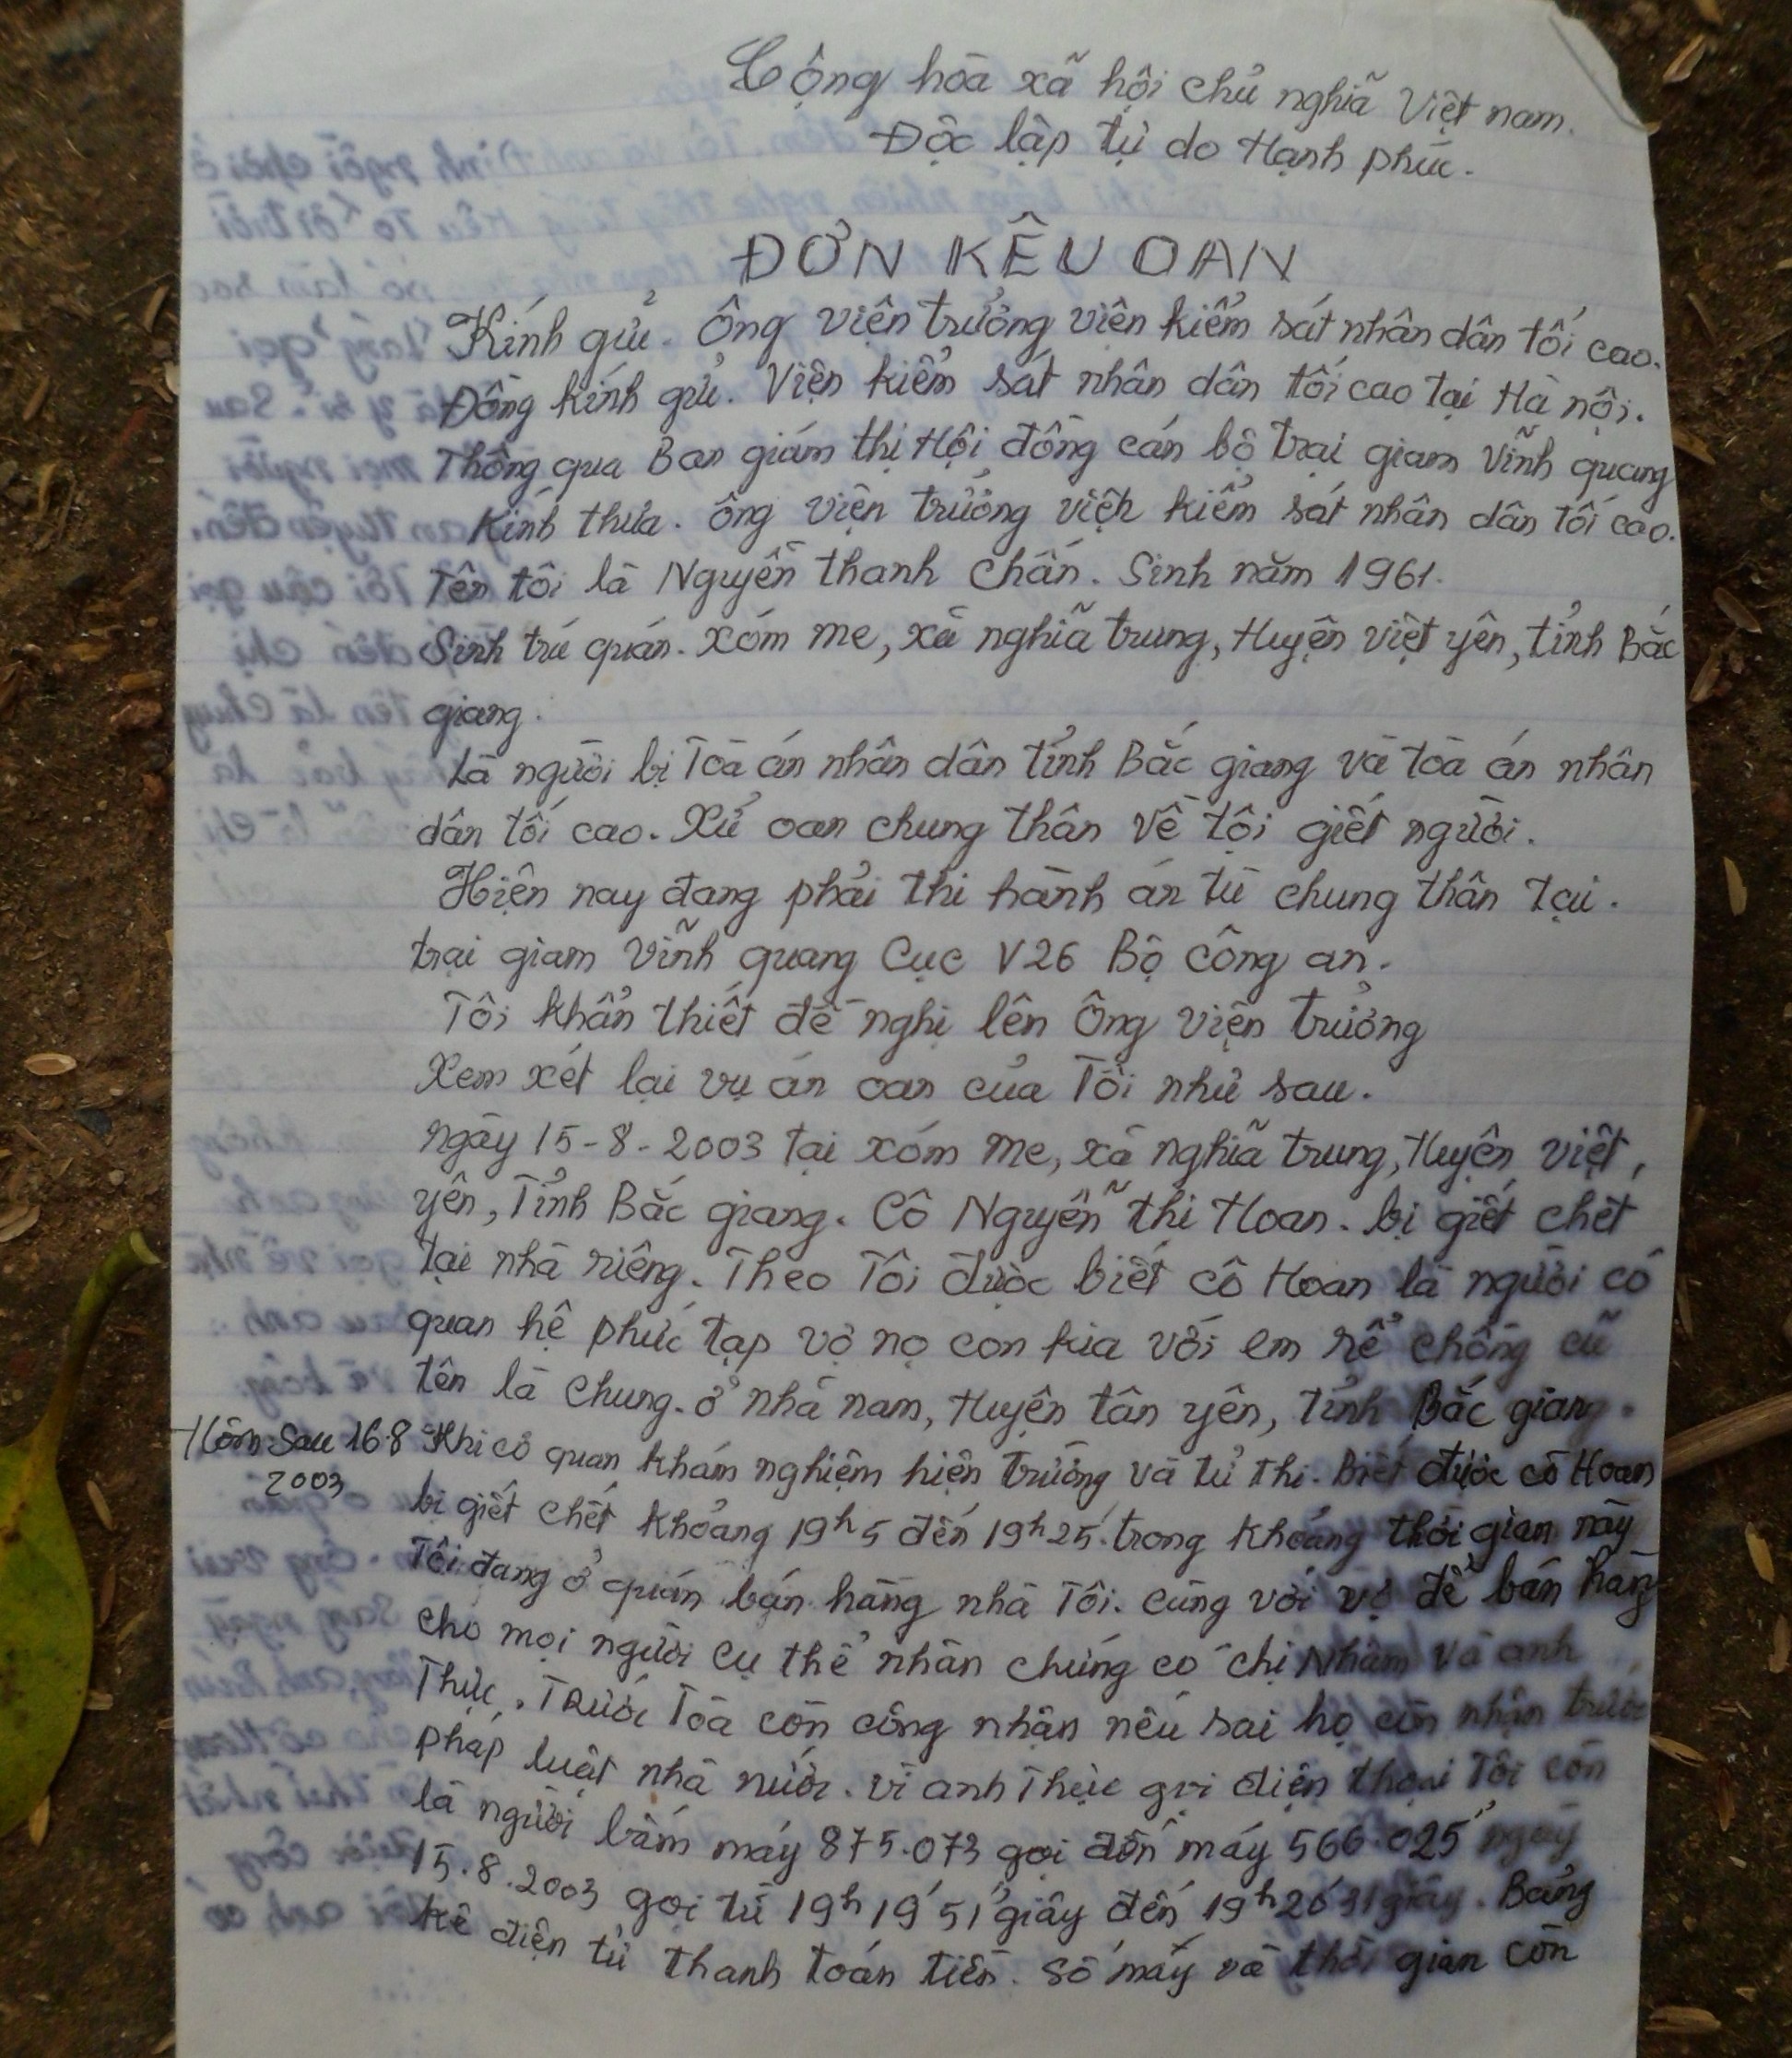 Cộng hòa xã hội chủ nghĩa Việt nam.
Độc lập tự do Hạnh phúc.
ĐƠN KÊU OAN
Kính gửi. Ông viện trưởng viện kiểm sát nhân dân tối cao.
Đồng kính gửi. Viện kiểm sát nhân dân tối cao tại Hà nội.
Thông qua Ban giám thị Hội đồng cán bộ trại giam Vĩnh quang
Kính thưa. ông viện trưởng viện kiểm sát nhân dân tối cao.
Tên tôi là Nguyễn thanh chấn. Sinh năm 1961.
Sinh trú quán. xóm me, xã nghĩa trung, Huyện việt yên, tỉnh Bắc
giang.
Là người bị Tòa án nhân dân tỉnh Bắc giang và tòa án nhân
dân tối cao. Xử oan chung thân về tội giết người.
Hiện nay đang phải thi hành án tù chung thân tại.
trại giam Vĩnh quang Cục V26 Bộ Công an.
Tôi khẩn thiết đề nghị lên Ông viện trưởng
Xem xét lại vụ án oan của Tôi như sau.
ngày 15-8-2003 tại xóm me, xã nghĩa trung, Huyện việt,
yên, Tỉnh Bắc giang. Cô Nguyễn thị Hoan. bị giết chết
tại nhà riêng. Theo Tôi được biết cô Hoan là người có
quan hệ phức tạp vợ nọ con kia với em rể chồng cũ
tên là chung. ở nhã nam, Huyện tân yên, tỉnh Bắc giang.
Hôm sau 16.8 Khi cơ quan khám nghiệm hiện trường và tử thi. Biết được cô Hoan
2003
bị giết chết khoảng 19h5 đến 19h25'. trong khoảng thời gian này
Tôi đang ở quán bán hàng nhà Tôi. cùng với vợ để bán hàng
cho mọi người cụ thể nhân chứng có chị Nhâm và anh
Thực. Trước Tòa còn công nhận nếu sai họ còn nhận trước
pháp luật nhà nước. vì anh Thực gọi điện thoại Tôi còn
là người bấm máy 875.073 gọi đến máy 566.025 ngày
15.8.2003 gọi từ 19h19'51" giây đến 19h20'31 giây. Bảng
kê điện tử thanh toán tiền. số máy và thời gian còn